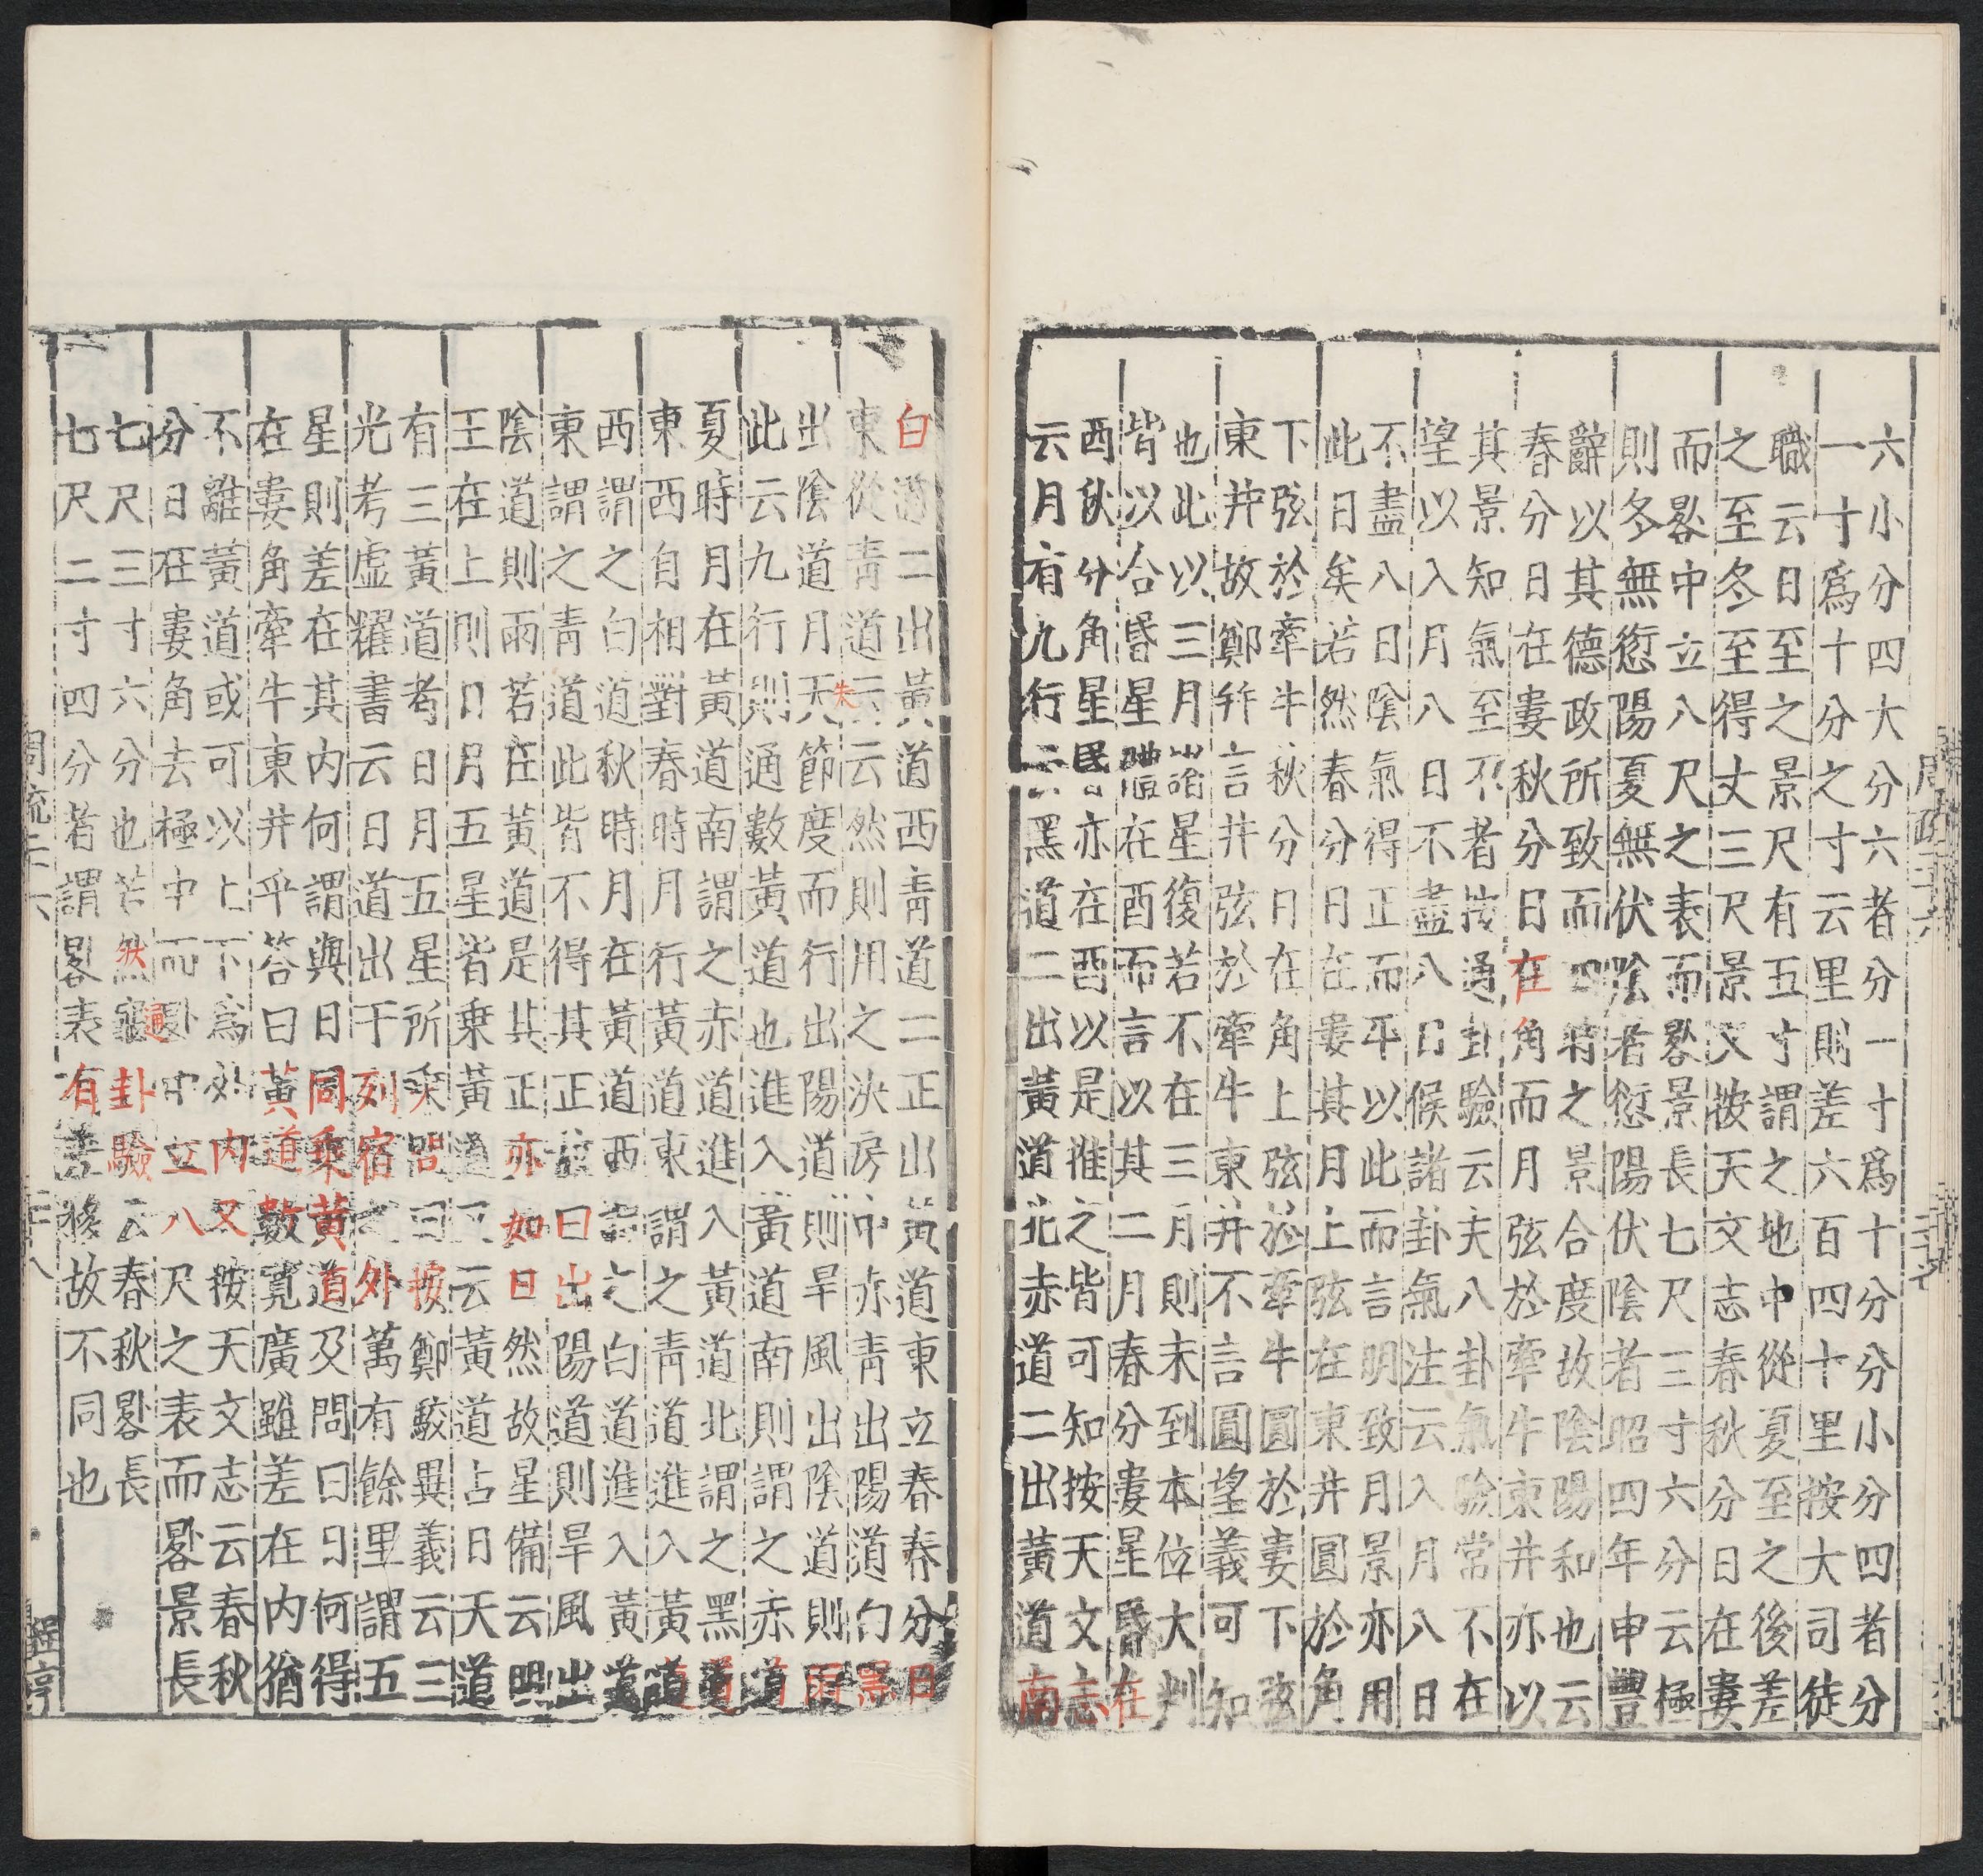 六小分四大分六者分一寸爲十分分小分四者分
一寸爲十分之寸云里則差六百四十里按大司徒
職云日至之景尺有五寸謂之地中從夏至之後差
之至冬至得丈三尺景又按天文志春秋分日在婁
而晷中立八尺之表而晷景長七尺三寸六分云極
則冬無愆陽夏無伏陰者愆陽伏陰者昭四年申豐
辭以其德政所致而四時之景合度故陰陽和也云
春分日在婁秋分日在角而月弦於牽牛東井亦以
其景知氣至不者按通卦驗云夫八卦氣驗常不在
望以入月八日不盡八日候諸卦氣注云入月八日
不盡八日陰氣得正而平以此而言明致月景亦用
此日矣若然春分日在婁其月上弦在東井圓於角
下弦於牽牛秋分日在角上弦於牽牛圓於婁下弦
東井故鄭并言井弦於牽牛東井不言圓望義可知
也此以三月諸星復若不在三月則未到本位大判
皆以合昏星體在酉而言以其二月春分婁星昏在
酉秋分角星昬亦在酉以是推之皆可知按天文志
云月有九行云黑道二出黃道北赤道二出黃道南
白道二出黃道西青道二正出黃道東立春春分日
東從青道云云然則用之決房中亦青出陽道白黑
出陰道月失節度而行出陽道則旱風出陰道則雨
此云九行則通數黃道也進入黃道南則謂之赤道
夏時月在黃道南謂之赤道進入黃道北謂之黑道
東西自相對春時月行黃道東謂之青道進入黃道
西謂之白道秋時月在黃道西謂之白道進入黃道
東謂之青道此皆不得其正故曰出陽道則旱風出
陰道則雨若在黃道是其正亦如日然故星備云明
王在上則日月五星皆乗黃道又云黃道占日天道
有三黃道者日月五星所乗問曰按鄭駮異義云三
光考虛耀書云日道出于列宿之外萬有餘里謂五
星則差在其內何謂與日同乗黃道及問曰日何得
在婁角牽牛東井乎荅曰黃道數寛廣雖差在內猶
不離黃道或可以上下爲外內又按天文志云春秋
分日在婁角去極中而晷中立八尺之表而晷景長
七尺三寸六分也若然通卦驗云春秋晷長
七尺二寸四分者謂晷表有差移故不同也